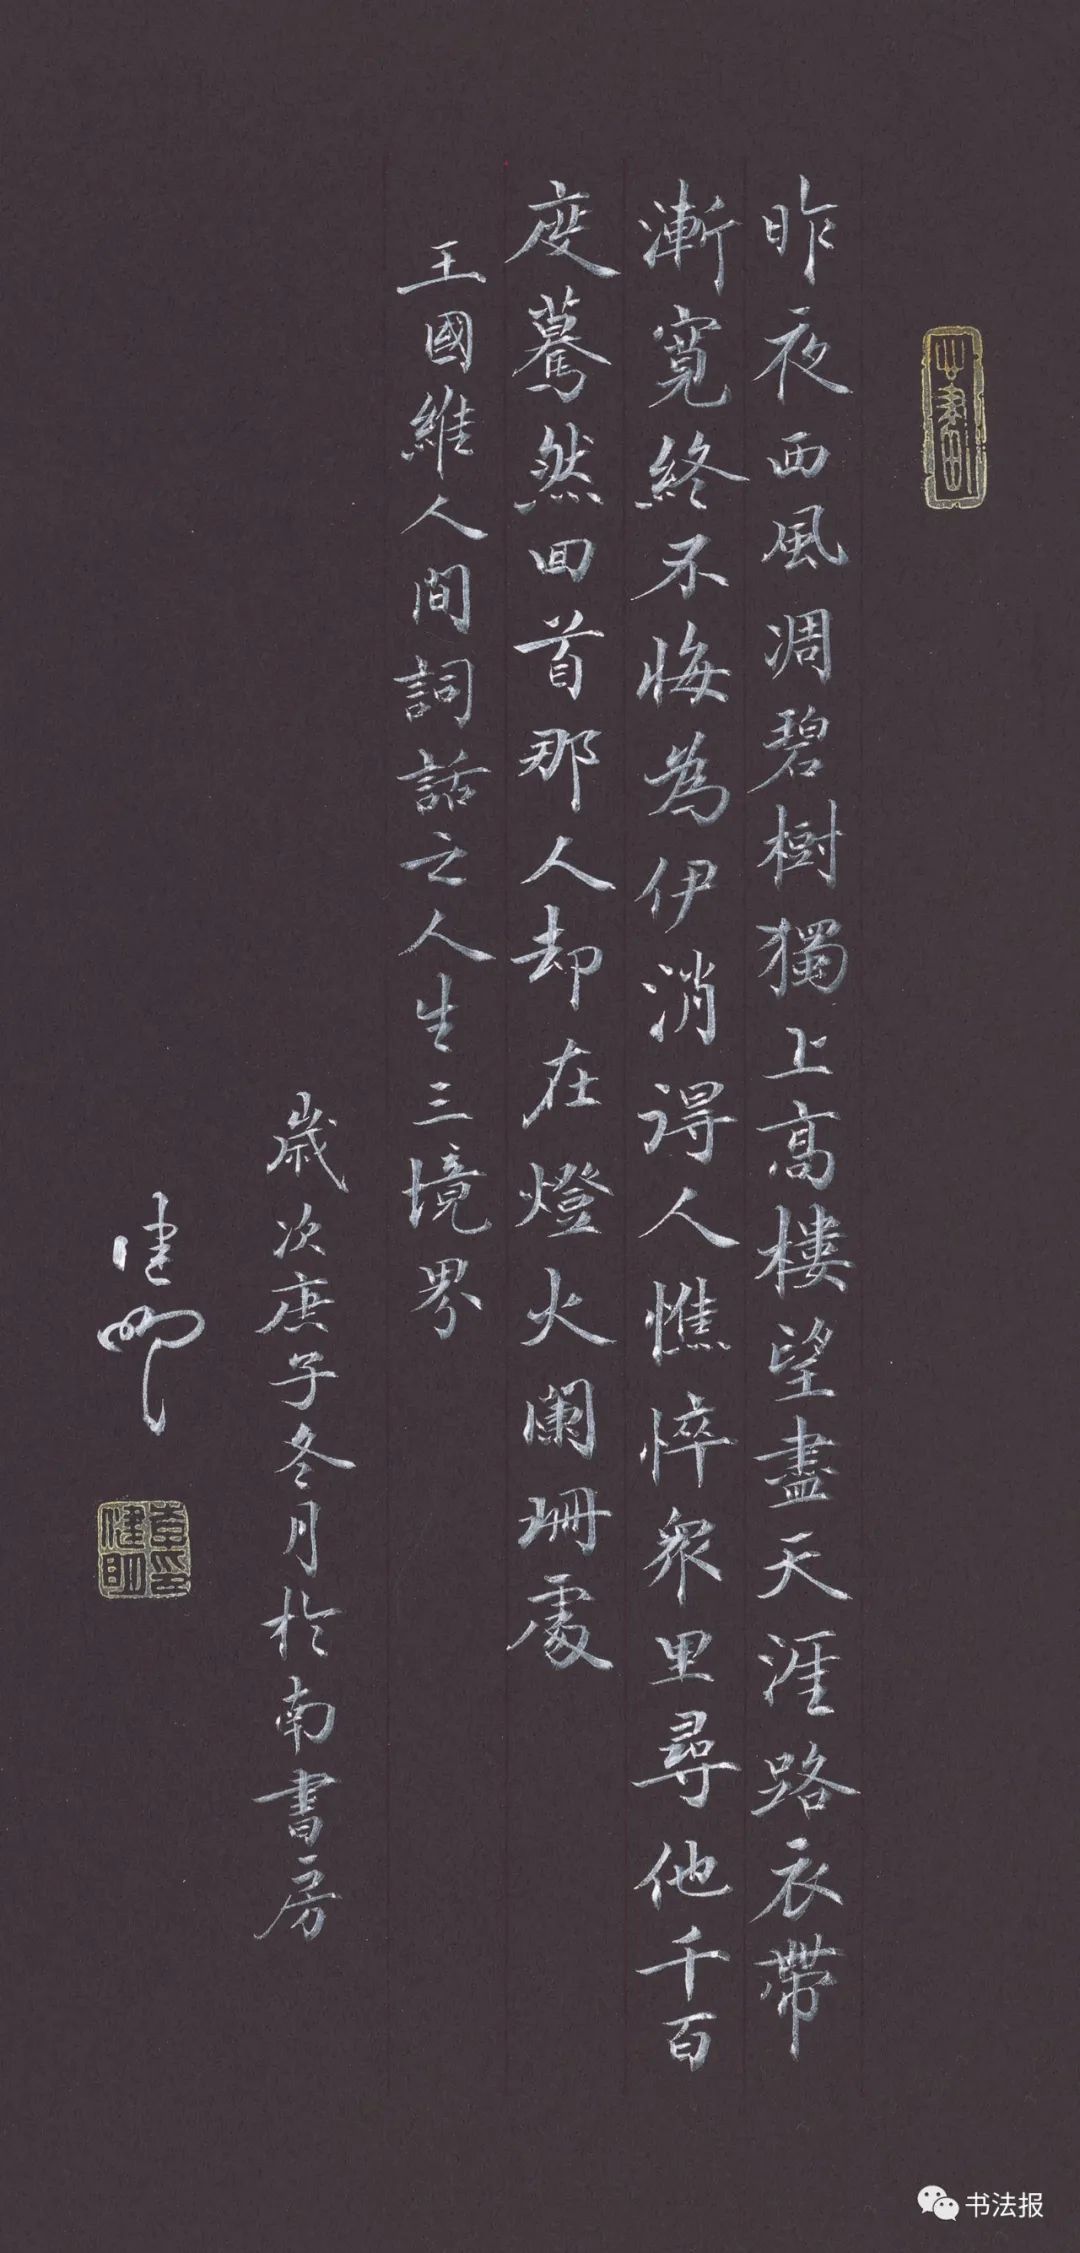 昨夜西風凋碧樹獨上高樓望盡天涯路衣帶
漸寬終不悔為伊消得人憔悴眾里尋他千百
度驀然回首那人却在燈火闌珊處
王國維人間詞話之人生三境界
歲次庚子冬月於南書房
健明
書法报